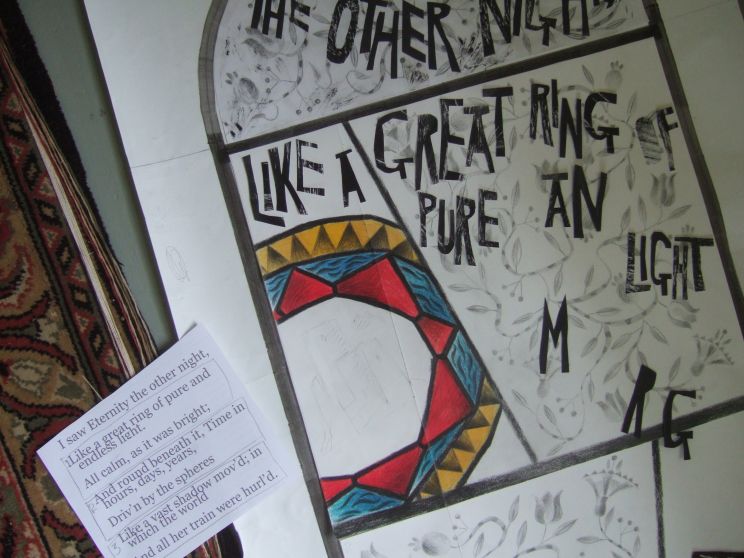 THE OTHER NIGHT
LIKE A GREAT RING OF
PURE AN
LIGHT
M
R G
I saw Eternity the other night,
1 Like a great ring of pure and
endless light.
All calm, as it was bright;
And round beneath it, Time in
hours, days, years,
Driv'n by the spheres
3 Like a vast shadow mov'd; in
which the world
And all her train were hurl'd.